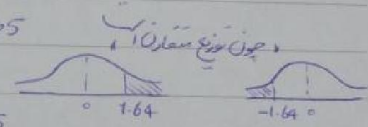 چون توزیع متقارن است
0 1.64 -1.64 0